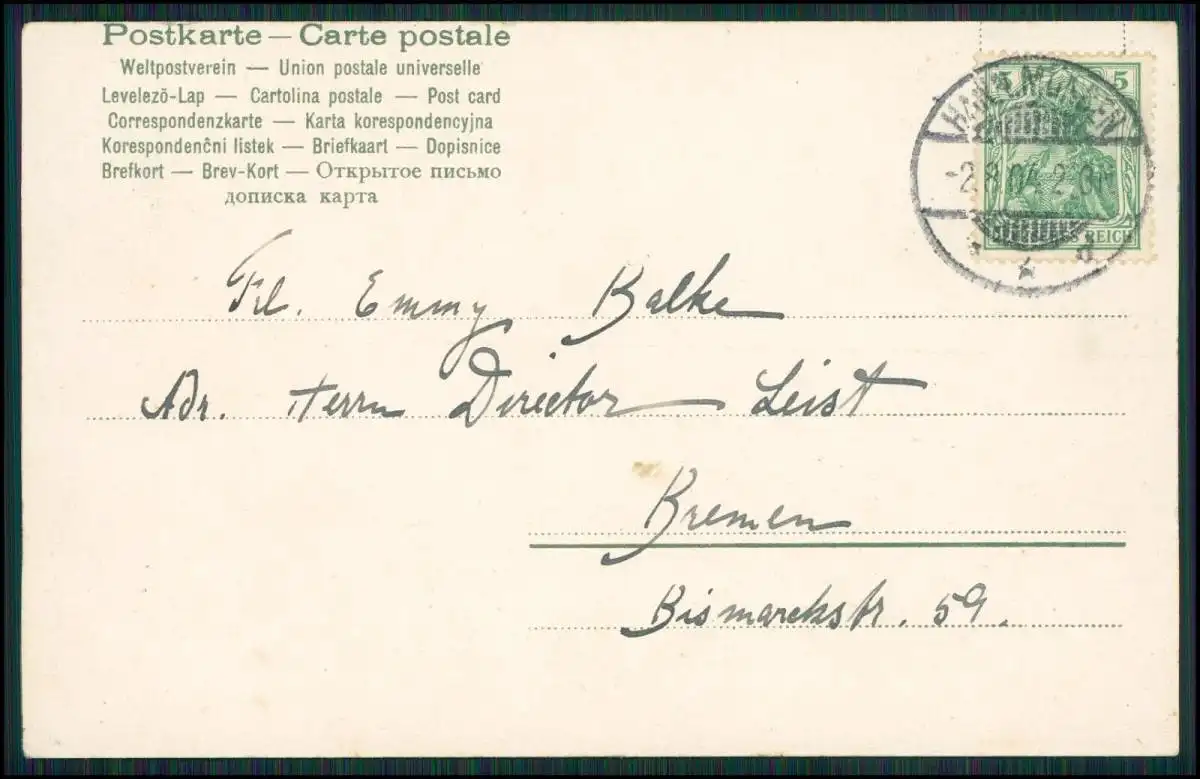 Postkarte — Carte postale
Weltpostverein — Union postale universelle
Levelezō-Lap — Cartolina postale — Post card
Correspondenzkarte — Karta korespondencyjna
Korespondenčni listek — Briefkaart — Dopisnice
Brefkort — Brev-Kort — Открытое письмо
дописка карта
5 5
REICH
Frl. Emmy Balke
Adr. Herrn Director Leist
Bremen
Bismarckstr. 59.